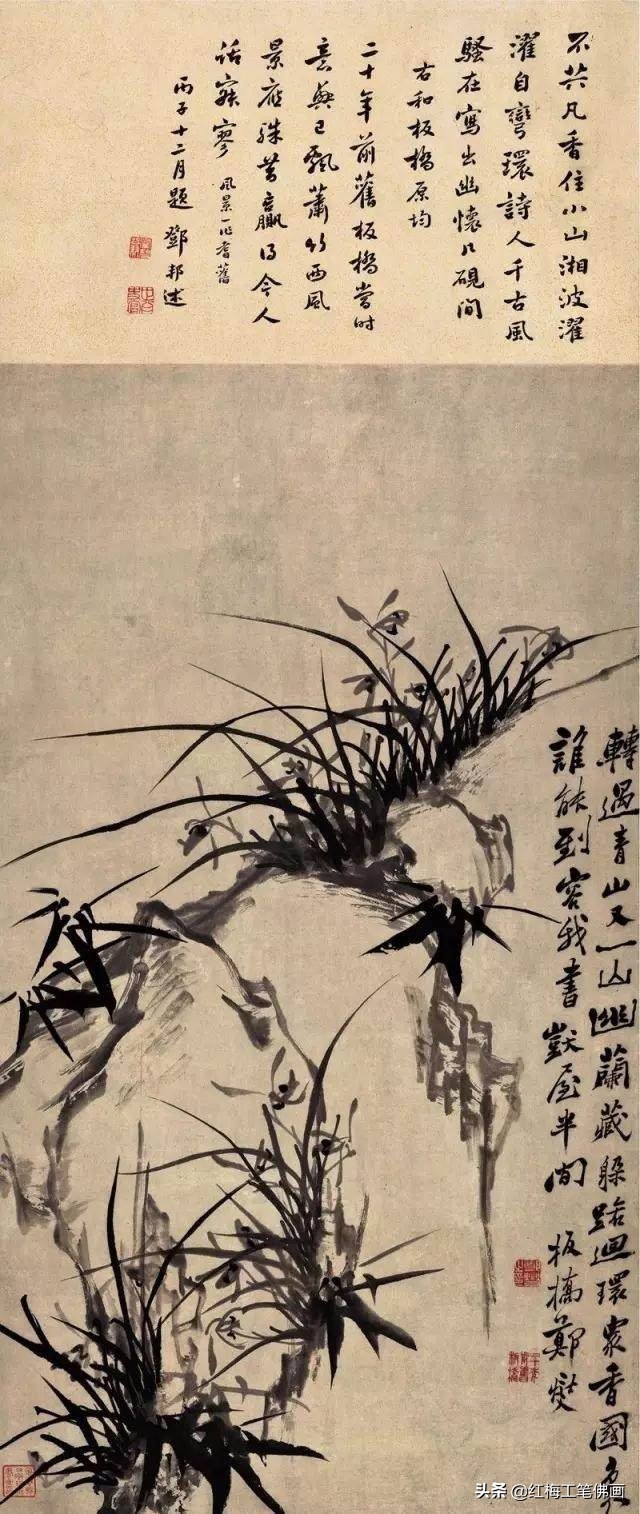 不共凡香住小山湘波濯
濯自彎環詩人千古風
騷在寫出幽懷几硯間
右和板橋原均
二十年前舊板橋當时
意興已飄蕭竹西風
景應殊昔贏得今人
話寂寥 風景一作耆舊
丙子十二月題 鄧邦述
轉過青山又一山幽蘭藏躲路迴環衆香國裏
誰能到容我書獃屋半間 板橋鄭燮
头条 @红梅工笔佛画